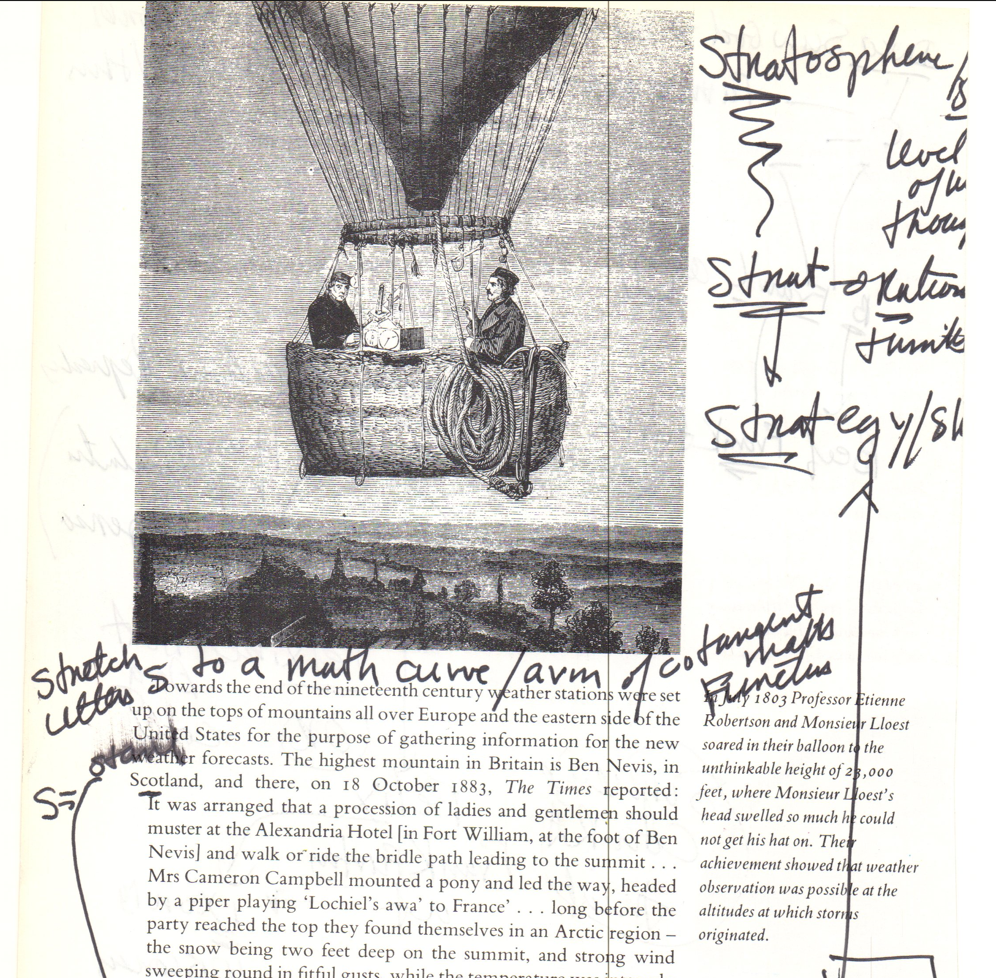 Stratosphere /
level
of
Strat
Strategy/Sh
Stretch
letters S to a math curve/arm of cotangent
Towards the end of the nineteenth century weather stations were set
up on the tops of mountains all over Europe and the eastern side of the
United States for the purpose of gathering information for the new
weather forecasts. The highest mountain in Britain is Ben Nevis, in
Scotland, and there, on 18 October 1883, The Times reported:
It was arranged that a procession of ladies and gentlemen should
muster at the Alexandria Hotel [in Fort William, at the foot of Ben
Nevis] and walk or ride the bridle path leading to the summit . . .
Mrs Cameron Campbell mounted a pony and led the way, headed
by a piper playing ‘Lochiel's awa' to France’ . . . long before the
party reached the top they found themselves in an Arctic region –
the snow being two feet deep on the summit, and strong wind
sweeping round in fitful gusts, while the temperature was
S=
In July 1803 Professor Etienne
Robertson and Monsieur Lloest
soared in their balloon to the
unthinkable height of 23,000
feet, where Monsieur Lloest's
head swelled so much he could
not get his hat on. Their
achievement showed that weather
observation was possible at the
altitudes at which storms
originated.